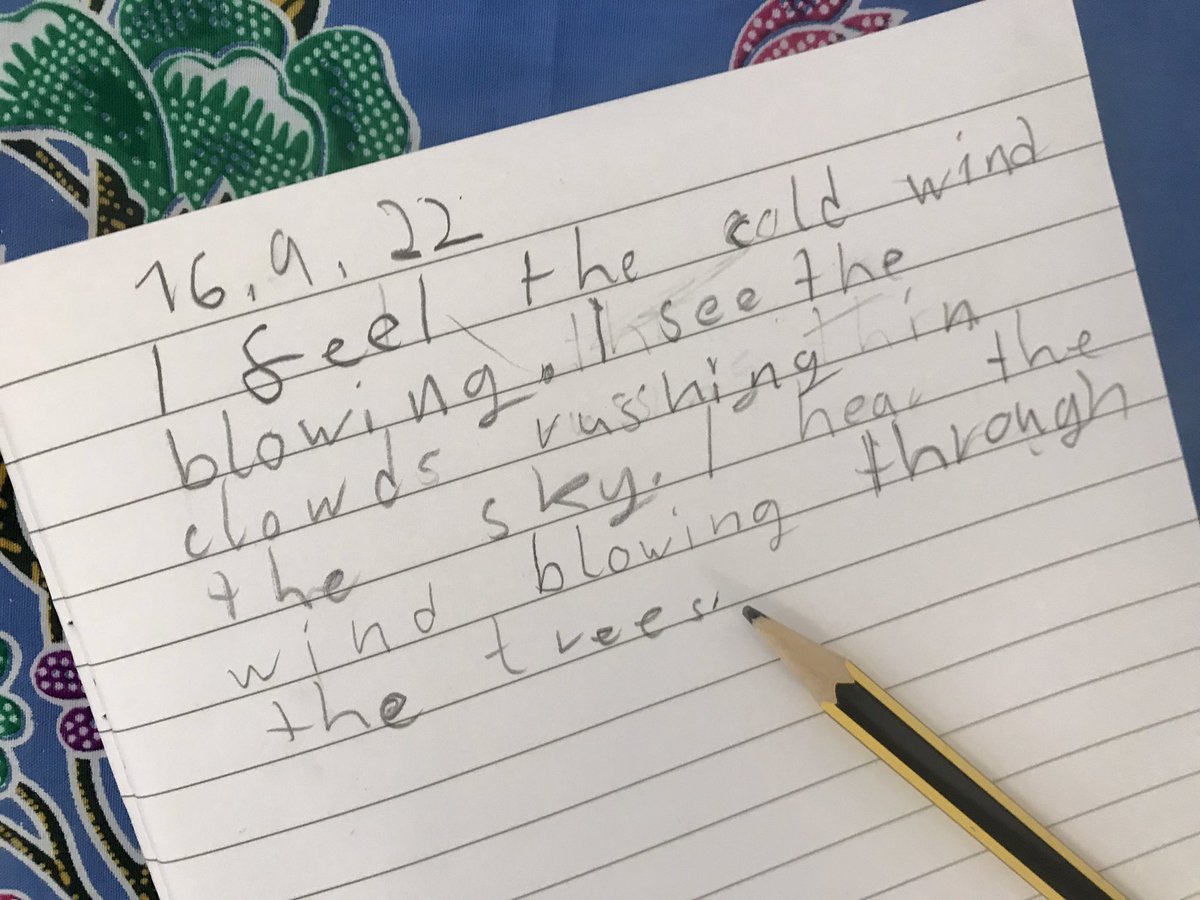 16.9.22
I feel the cold wind
blowing. I see the
clowds russhing in
the sky. I hear the
wind blowing through
the trees.